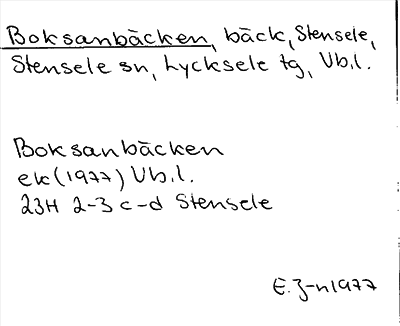 Boksanbäcken, bäck, Stensele,
Stensele sn, Lycksele tg, Vb.l.
Boksanbäcken
ek (1977) Vb.l.
23H 2-3 c-d Stensele
E. J-n 1977